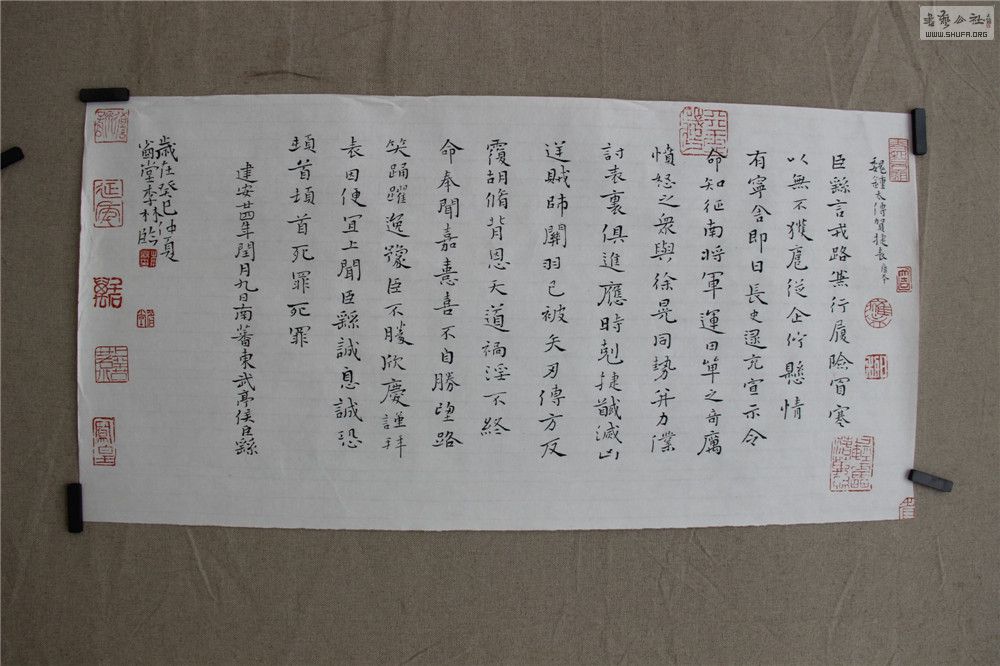 魏鍾太傅賀捷表唐本
臣繇言戎路兼行履險冒寒
以無不獲扈從企佇懸情
有寧舍即日長史逯充宣示令
命知征南將軍運田單之奇厲
憤怒之衆與徐晃同勢并力
討表裏俱進應時剋捷馘滅凶
逆賊帥關羽已被矢刃傅方反
覆胡脩背恩天道禍淫不終
命奉聞嘉憙喜不自勝望路
笑踊躍逸豫臣不勝欣慶謹拜
表因便宜上聞臣繇誠惶誠恐
頓首頓首死罪死罪
建安廿四年閏月九日南蕃東武亭侯臣繇
歲在癸巳仲夏
堂李林臨
書藝公社
WWW.SHUFA.ORG